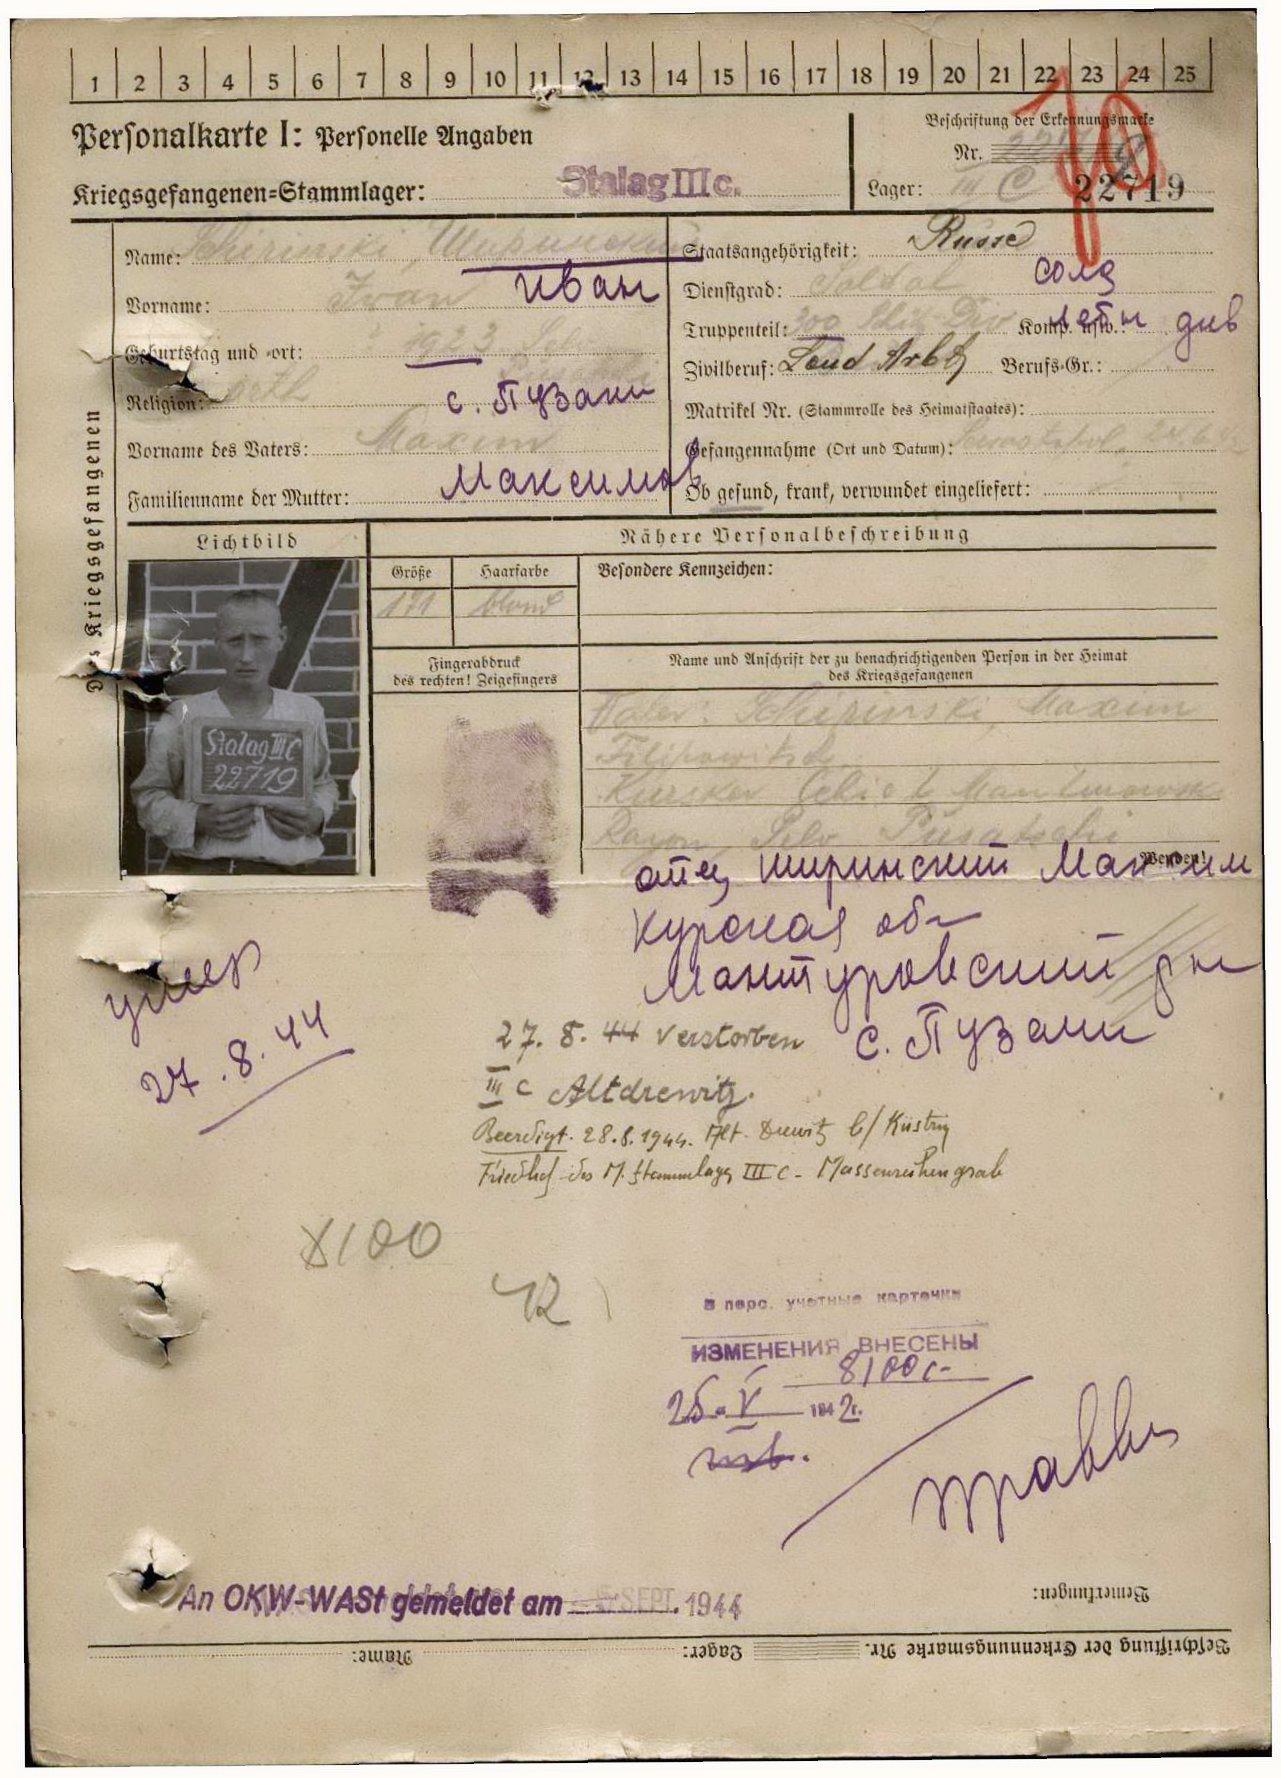 1 2 3 4 5 6 7 8 9 10 11 12 13 14 15 16 17 18 19 20 21 22 23 24 25
Personalkarte I: Personelle Angaben
Kriegsgefangenen-Stammlager: Stalag III c.
Beschriftung der Erkennungsmarke
Nr.
Lager: III C 22719
Des Kriegsgefangenen
Name: Schirinski Ширинский
Vorname: Iwan Иван
Geburtstag und -ort:
Religion:
с. Пузачи
Vorname des Vaters: Maxim
Максимов
Familienname der Mutter:
Staatsangehörigkeit: Russe
Dienstgrad: Soldat солд
Truppenteil: Komp. usw.: див
Zivilberuf: Land Arb Berufs-Gr.:
Matrikel Nr. (Stammrolle des Heimatstaates):
Gefangennahme (Ort und Datum):
Ob gesund, krank, verwundet eingeliefert:
Lichtbild
Nähere Personalbeschreibung
Größe Haarfarbe Besondere Kennzeichen:
171 blond
Fingerabdruck
des rechten! Zeigefingers
Name und Anschrift der zu benachrichtigenden Person in der Heimat
des Kriegsgefangenen
Stalag III C
22719
Vater: Schirinski, Maxim
Filipowitsch
Rayon Pusatschi
Wenden!
отец Ширинский Максим
Курская обл
Мантуровский р-н
с. Пузачи
умер
27.8.44
27. 8. 44 verstorben
III c Altdrewitz.
Beerdigt. 28.8.1944. Alt-Drewitz b/Küstrin
Friedhof des M. Stammlagers III C - Massenreihengrab
8100
в перс. учетные карточки
ИЗМЕНЕНИЯ ВНЕСЕНЫ
8100с
25. V 194
An OKW-WASt gemeldet am SEPT. 1944
Bemerkungen:
Beschriftung der Erkennungsmarke Nr. Lager: Name: